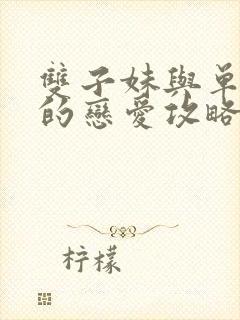 雙子妹與單
的戀愛攻略
柠檬